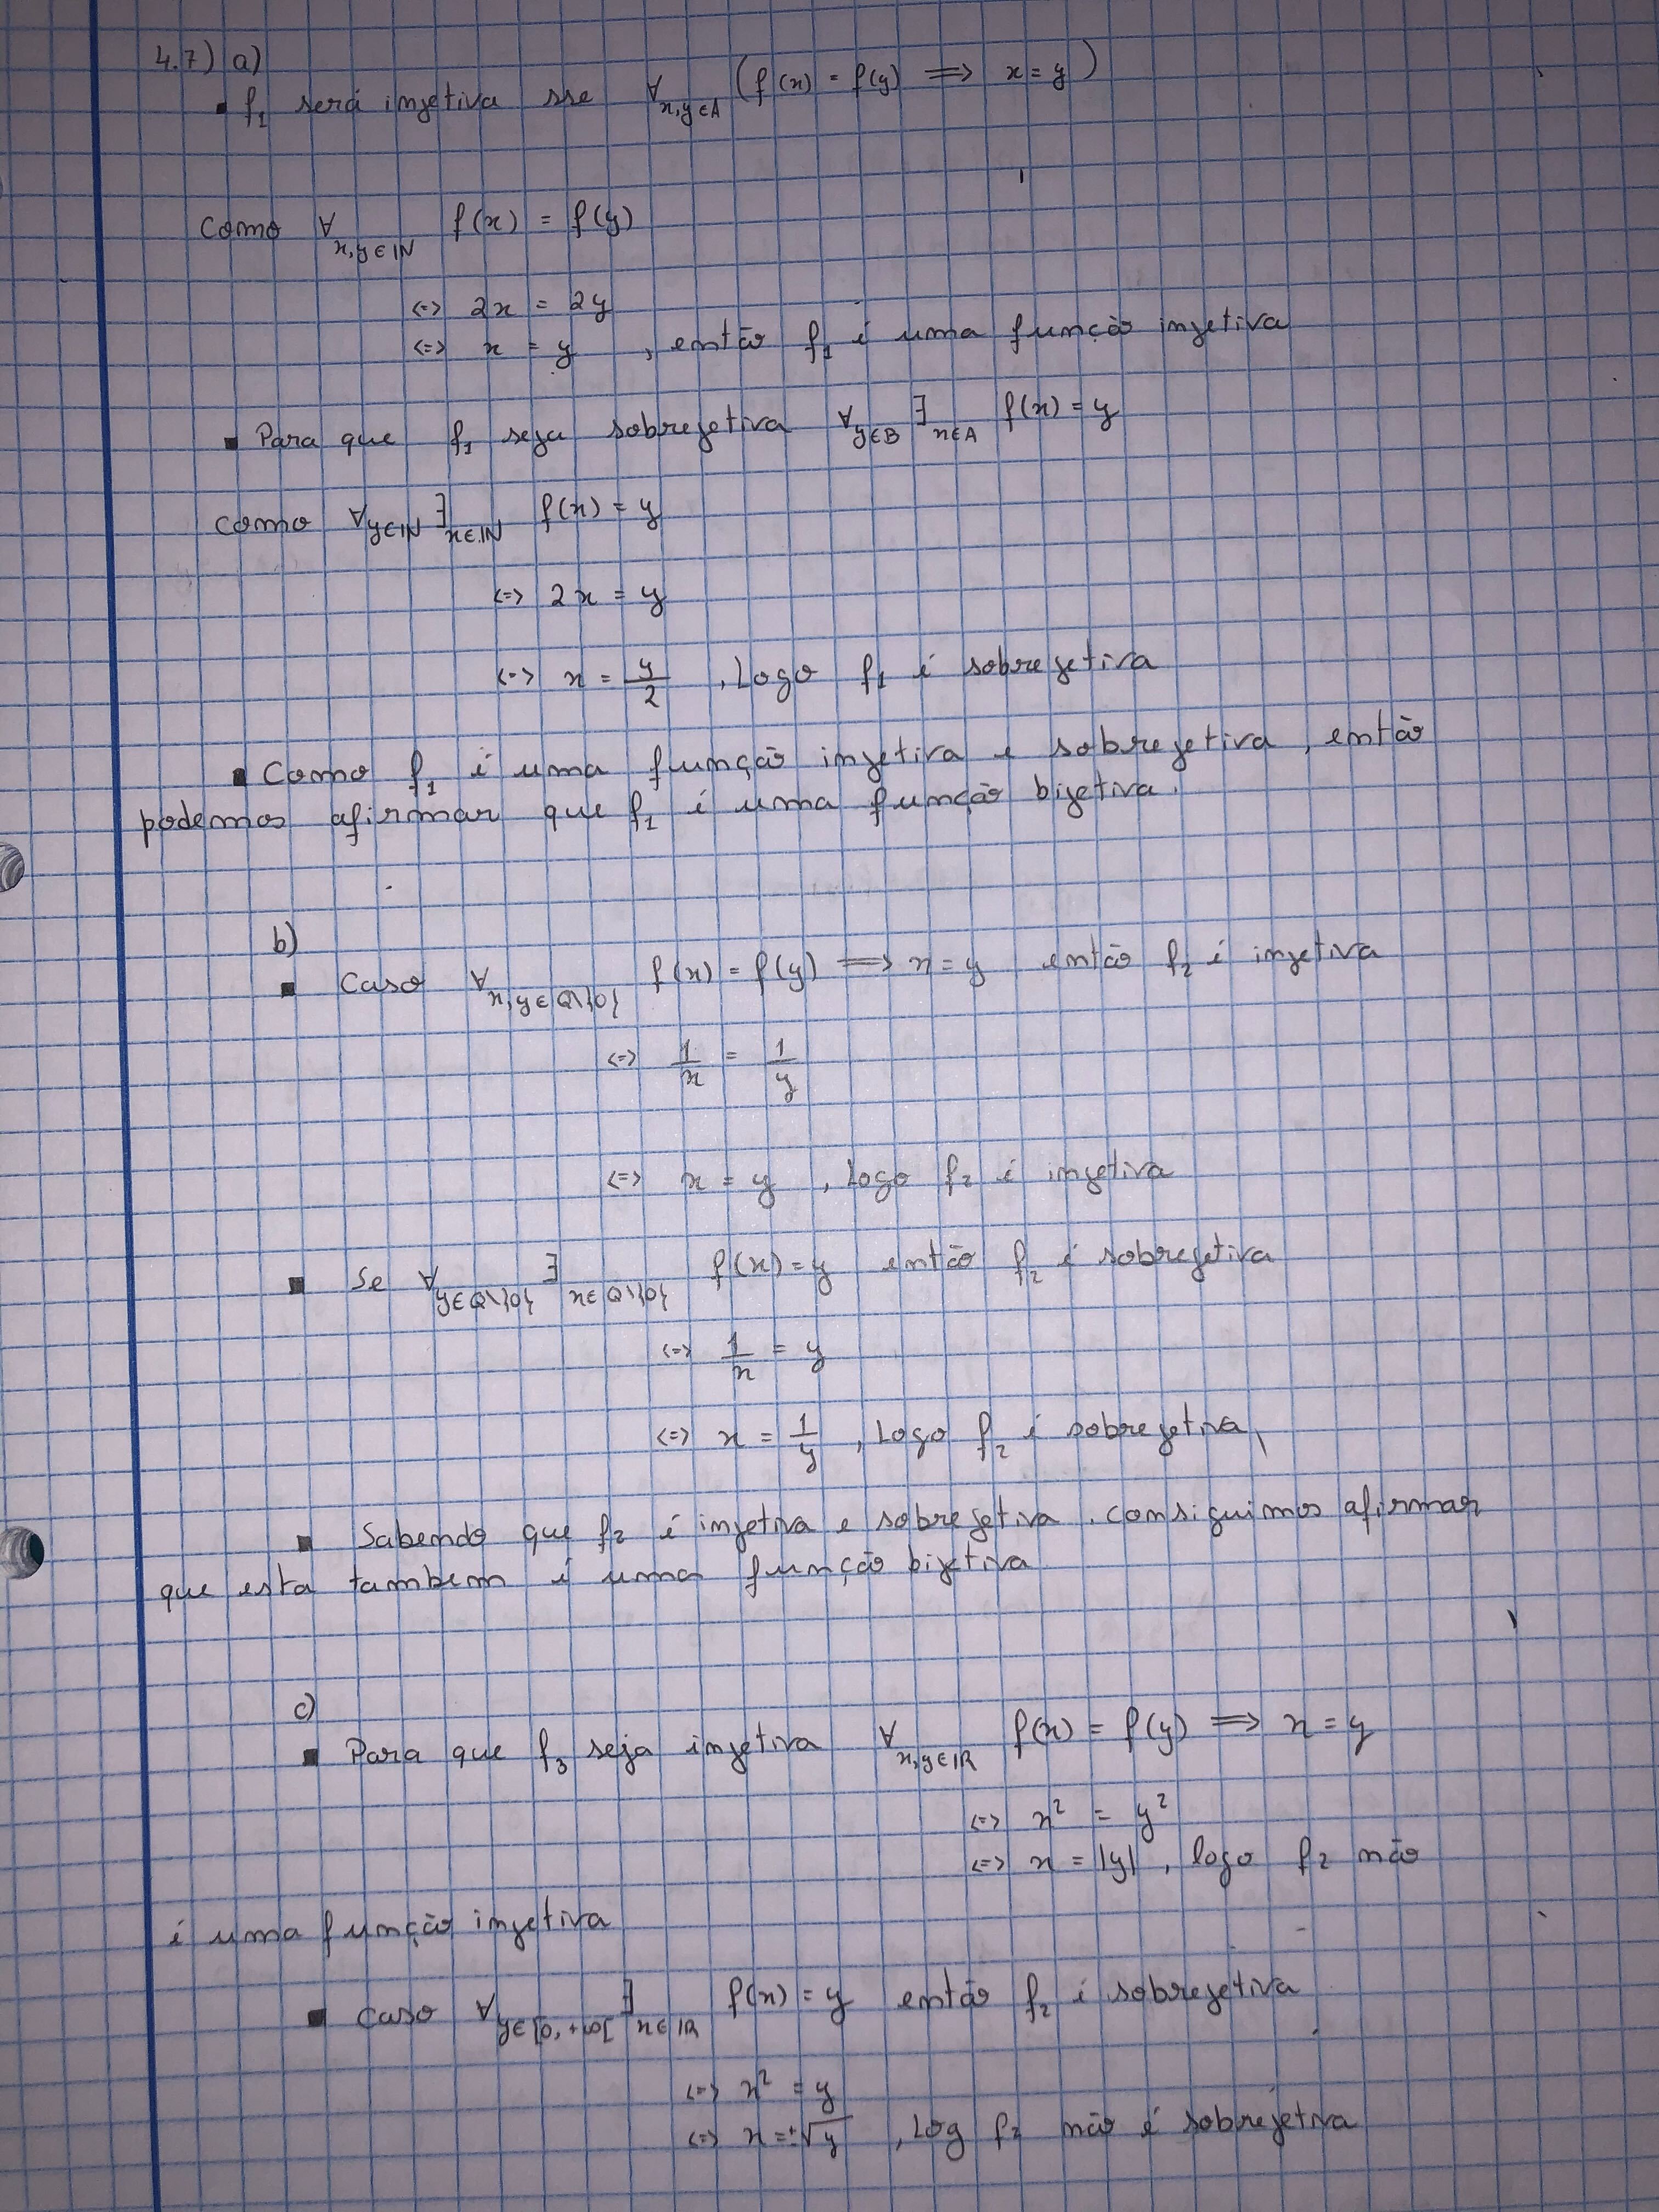 4.7) a)
▪ f₁ será injetiva sse ∀x,y∈A (f(x) = f(y) ⟹ x = y)
Como ∀x,y∈ℕ f(x) = f(y)
<=> 2x = 2y
<=> x = y , então f₁ é uma função injetiva
▪ Para que f₁ seja sobrejetiva ∀y∈B ∃x∈A f(x) = y
Como ∀y∈ℕ ∃x∈ℕ f(x) = y
<=> 2x = y
<=> x = y/2 , Logo f₁ é sobrejetiva
▪ Como f₁ é uma função injetiva e sobrejetiva, então
podemos afirmar que f₁ é uma função bijetiva.
b)
▪ Caso ∀x,y∈Q\{0} f(x) = f(y) ⟹ x = y então f₂ é injetiva
<=> 1/x = 1/y
<=> x = y , Logo f₂ é injetiva
▪ Se ∀y∈Q\{0} ∃x∈Q\{0} f(x) = y então f₂ é sobrejetiva
<=> 1/x = y
<=> x = 1/y , Logo f₂ é sobrejetiva,
▪ Sabendo que f₂ é injetiva e sobrejetiva, consiguimos afirmar
que esta tambem é uma função bijetiva
c)
▪ Para que f₃ seja injetiva ∀x,y∈ℝ f(x) = f(y) ⟹ x = y
<=> x² = y²
<=> x = |y| , logo f₂ não
é uma função injetiva
▪ Caso ∀y∈[0,+∞[ ∃x∈ℝ f(x) = y então f₂ é sobrejetiva
<=> x² = y
<=> x = ±√y , Log f₂ não é sobrejetiva